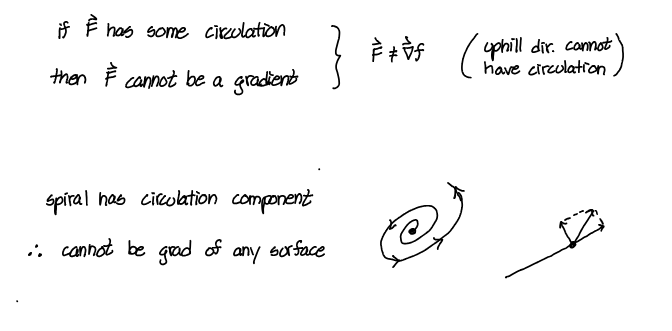 if F⃗ has some circulation
then F⃗ cannot be a gradient
F⃗ ≠ ∇⃗f
(uphill dir. cannot
have circulation)
spiral has circulation component
∴ cannot be grad of any surface